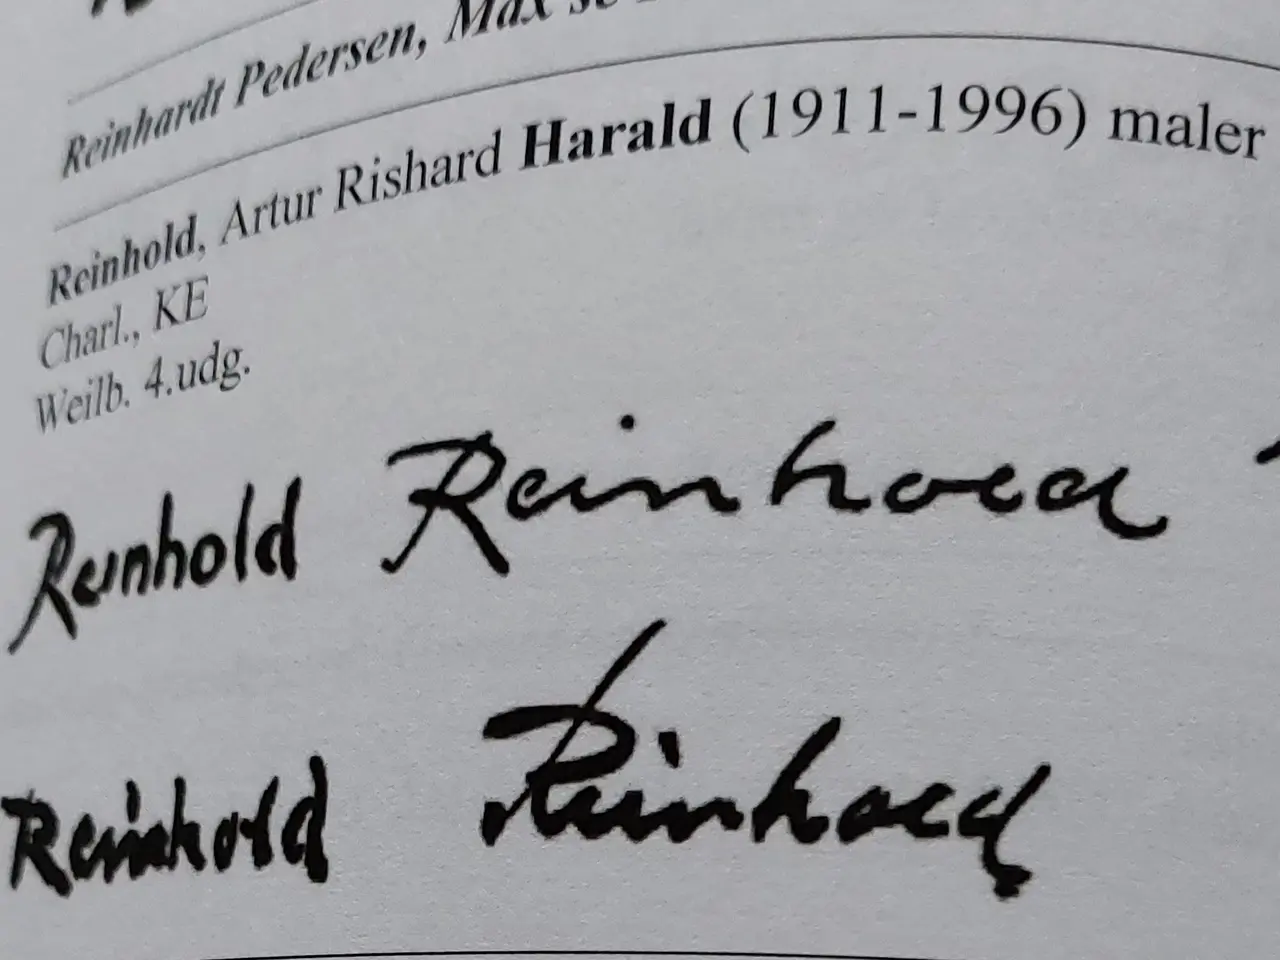 Reinhardt Pedersen, Max se
Reinhold, Artur Rishard Harald (1911-1996) maler
Charl., KE
Weilb. 4.udg.
Reinhold Reinhold
Reinhold Reinhold